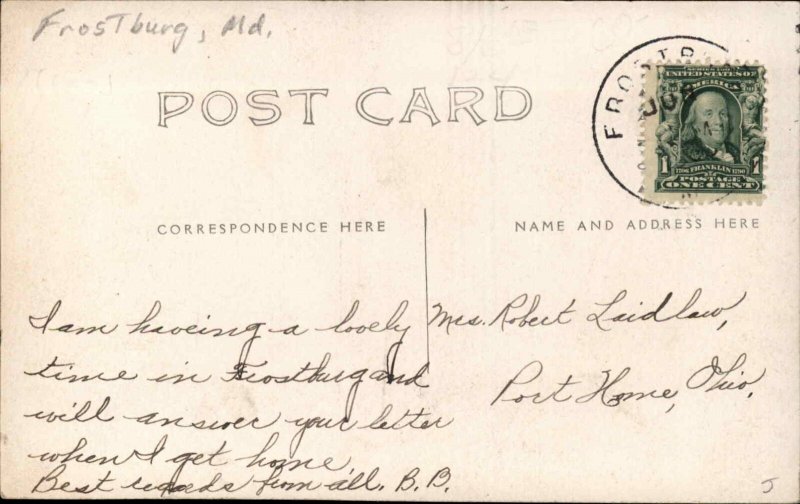 Frostburg, Md.
POST CARD
FROSTB
SERIES 1902
UNITED STATES OF
AMERICA
1 1
1706 FRANKLIN 1790
POSTAGE
ONE CENT
CORRESPONDENCE HERE
NAME AND ADDRESS HERE
I am haveing a lovely
time in Frostburg and
will answer your letter
when I get home.
Best regards from all. B.B.
Mrs. Robert Laidlaw,
Port Home, Ohio.
J